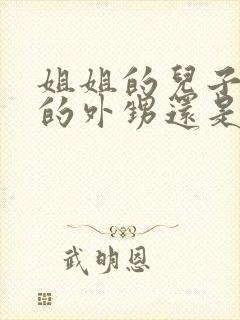 姐姐的兒子
的外甥還是
武明恩